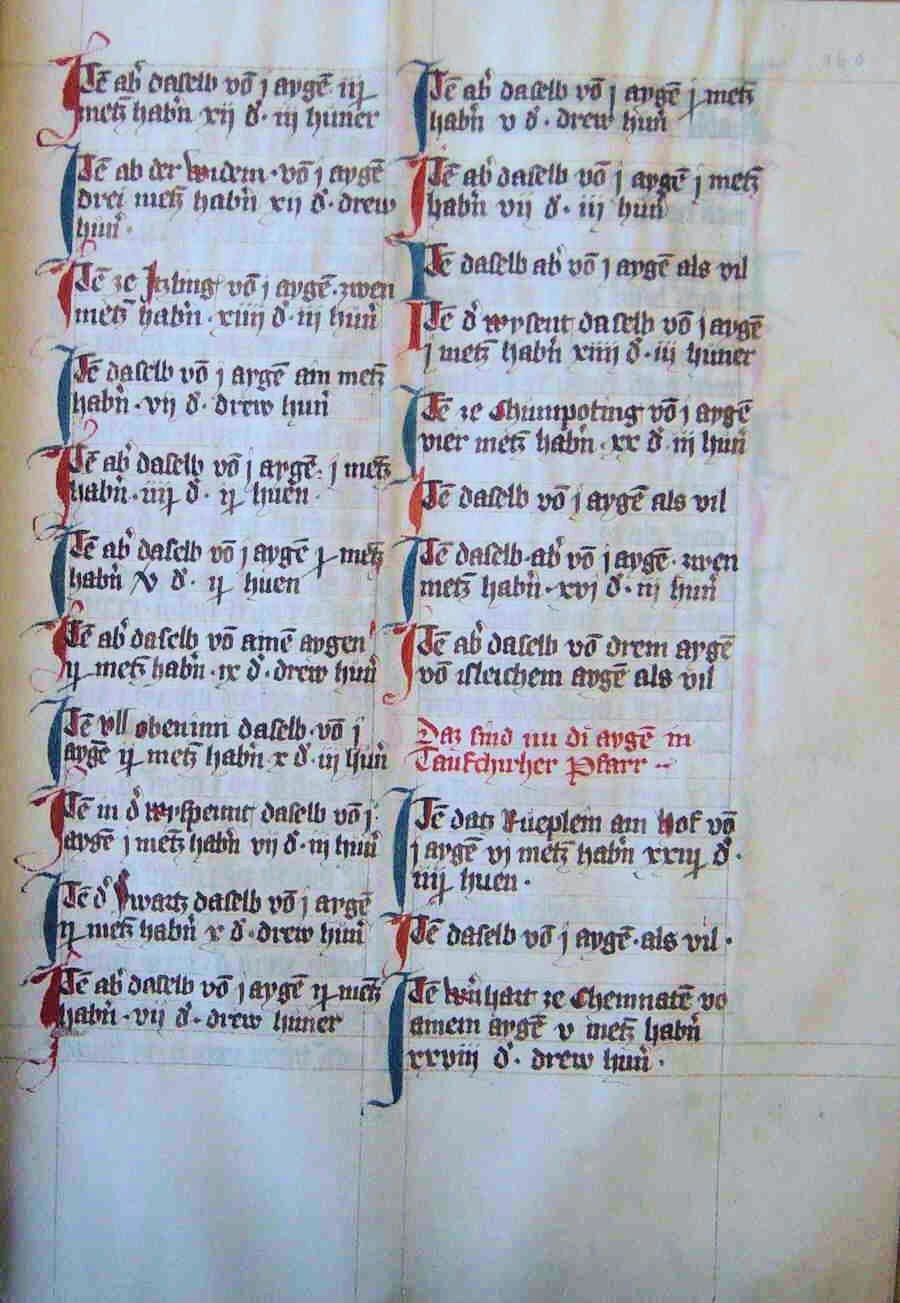 Itē ab᷎ daselb võ j aygē iij
metz habn̄ xij d᷎ · iij hüner
Itē ab der widem · võ j aygē
drei metz habn̄ xij d᷎ · drew
hün᷎ ·
Itē ze Itzling võ j aygē · zwen
metz habn̄ · xiiij d᷎ · iij hün᷎
Itē daselb võ j aygē ain metz
habn̄ · vij d᷎ · drew hün᷎
Itē ab᷎ daselb võ j aygē · j metz
habn̄ · d᷎ · huen ·
Itē ab᷎ daselb võ j aygē metz
habn̄ v d᷎ · huen
Itē ab᷎ daselb võ aīnē aygen
metz habn̄ · ix d᷎ · drew hün᷎
Itē Vll obeninn daselb · võ j
aygē metz habn̄ x d᷎ · iij hün᷎
Itē in d᷎ daselb võ j ·
aygē j metz habn̄ vij d᷎ · iij hün᷎
Itē d᷎ Swartz daselb võ j aygē
metz habn̄ v d᷎ · drew hün᷎
Itē ab᷎ daselb võ j aygē metz
habn̄ · vij d᷎ · drew hüner
Itē ab᷎ daselb võ j aygē metz
habn̄ v d᷎ · drew hün᷎
Itē ab᷎ daselb võ j aygē j metz
habn̄ vij d᷎ · iij hün᷎
Itē daselb ab᷎ võ j aygē als vil
Itē d᷎ wysent daselb võ j aygē
j metz habn̄ xiiij d᷎ · iij hüner
Itē ze Chumpoting võ j aygē
vier metz habn̄ · xx d᷎ iij hün᷎
Itē daselb võ j aygē als vil
Itē daselb · ab᷎ võ j aygē · zwen
metz habn̄ · xvj d᷎ · iij hün᷎
Itē ab᷎ daselb võ drein aygē
võ isleichem aygē als vil
Daz sind nu di aygē in
Taufchircher Pfarr ··
Itē datz Rüeplein am Hof võ
j aygē vj metz habn̄ d᷎ ·
huen ·
Itē daselb võ j aygē · als vil ·
Itē ze Chemnatē vo
ainem aygē v metz habn̄
xxviij d᷎ · drew hün᷎ ·